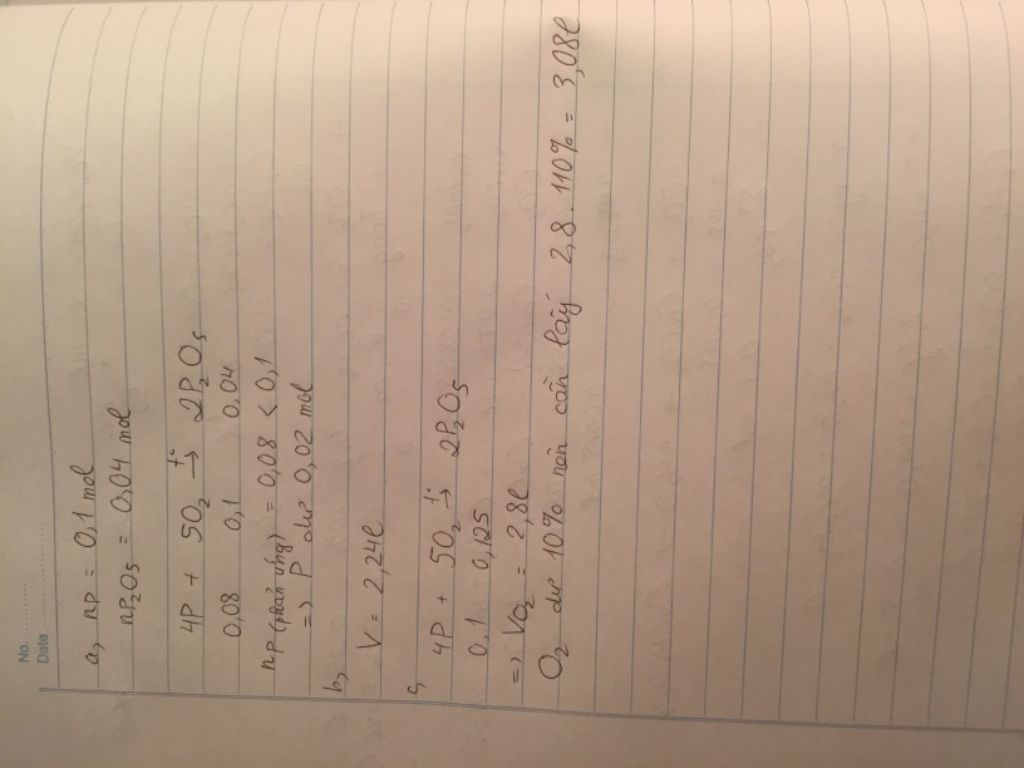 No. ...........
Date ......................
a, nP = 0,1 mol
nP₂O₅ = 0,04 mol
4P + 5O₂ →(t°) 2P₂O₅
0,08 0,1 0,04
nP (phản ứng) = 0,08 < 0,1
=> P dư 0,02 mol
b,
V = 2,24l
c,
4P + 5O₂ →(t°) 2P₂O₅
0,1 0,125
=> VO₂ = 2,8l
O₂ dư 10% nên cần lấy 2,8 . 110% = 3,08l